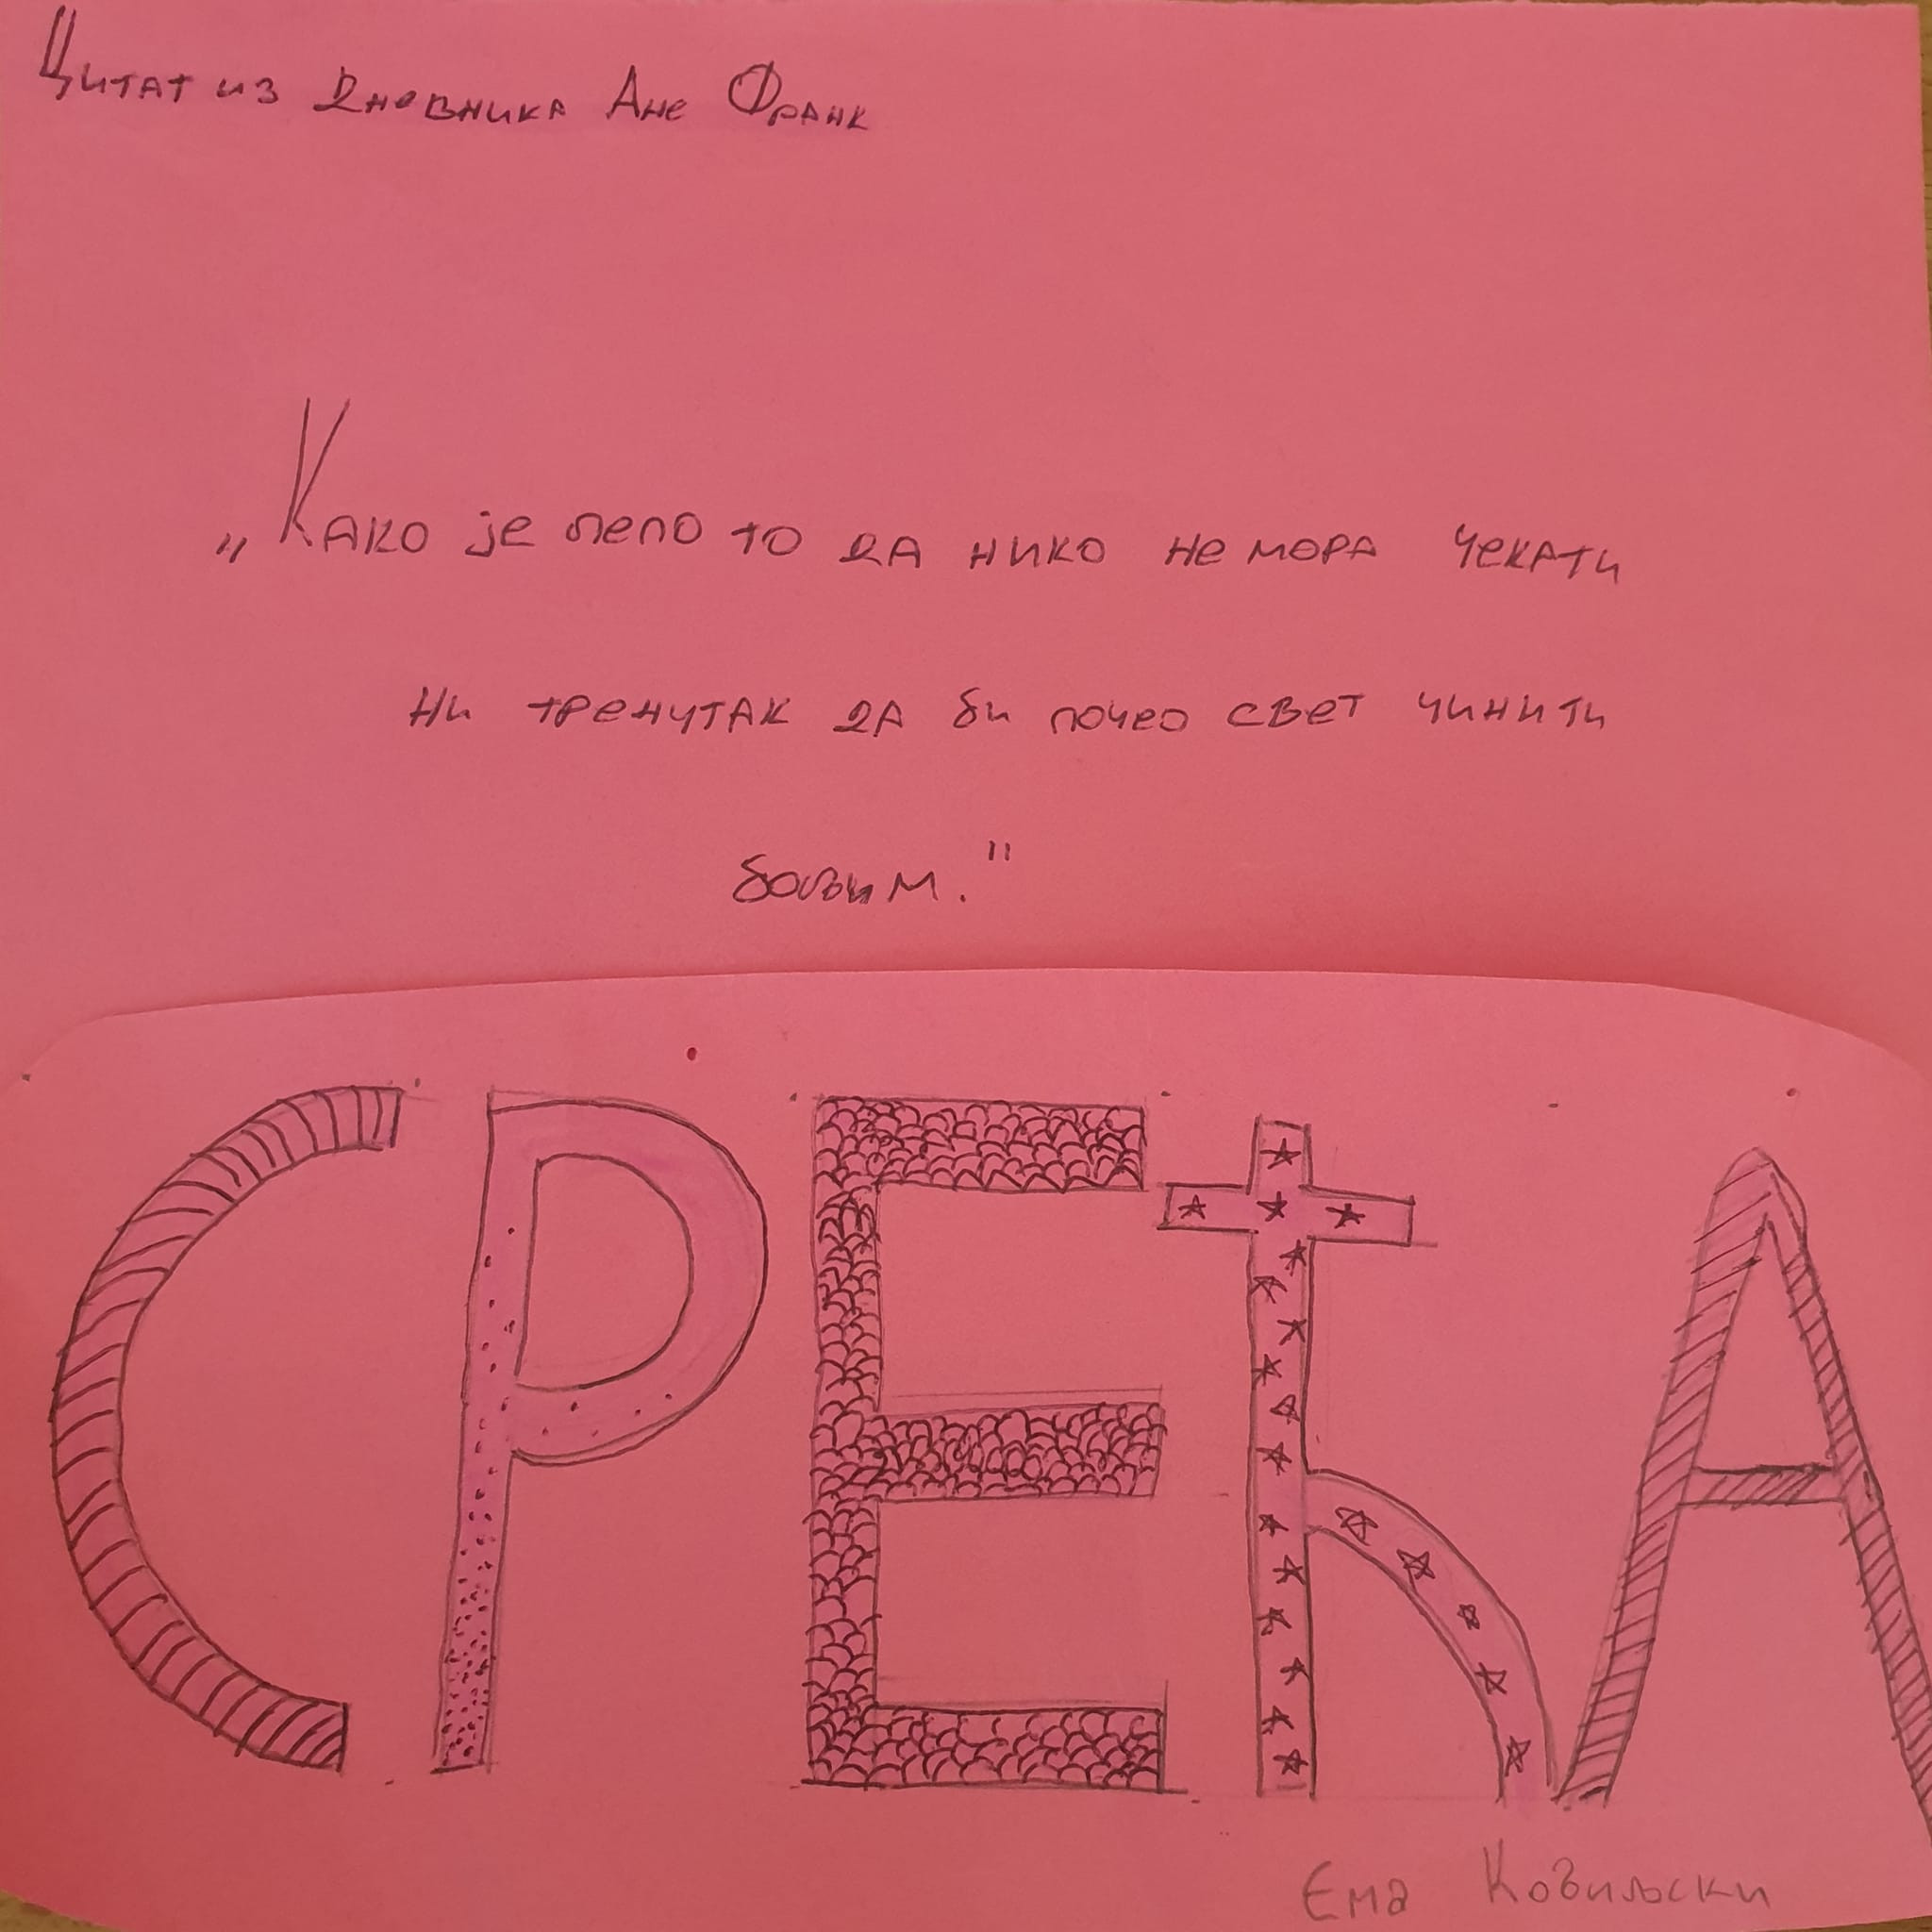 Цитат из Дневника Ане Франк
„Како је лепо то да нико не мора чекати
ни тренутак да би почео свет чинити
бољим."
СРЕЋА
Ема Ковиљски